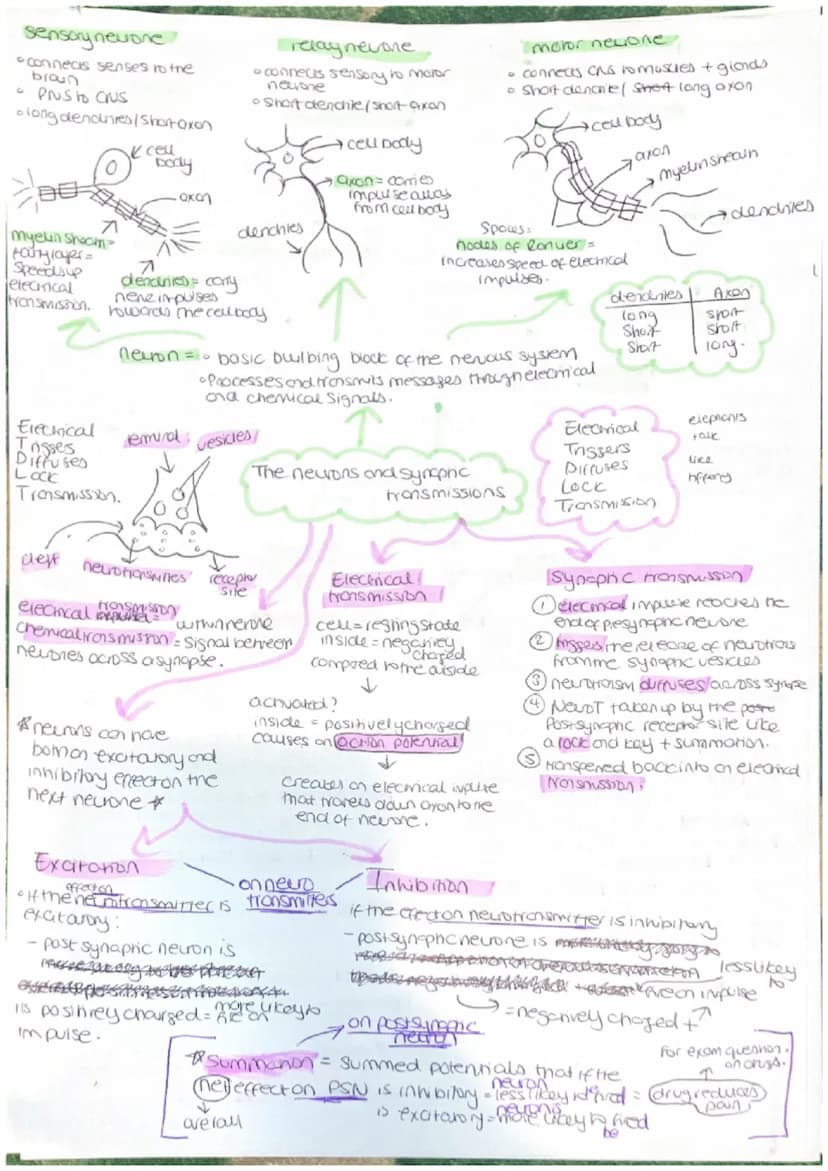 sensory neurone
°connects senses to the
brain
° PNS to CNS
°long dendrites/short axon
cell
body
axon
myelin sheath=
fatty layer=
speeds up
electrical
transmission.
dendrites= carry
nerve impulses
towards the cell body
relay neurone
°connects sensory to motor
neurone
°short dendrite/short axon
cell body
axon= carries
impulse away
from cell body
dendrites
motor neurone
° connects CNS to muscles + glands
° short dendrite/ short long axon
cell body
axon
myelin sheath
dendrites
spaces=
nodes of Ranvier=
increases speed of electrical
impulses.
dendrites | Axon
long | short
short | short
short | long.
neuron= ° basic builbing block of the nervous system
°Processes and transmits messages through electrical
and chemical signals.
Electrical
Triggers
Diffuses
Lock
Transmission.
terminal
vesicles
cleft
neurotransmitters
receptor
site
The neurons and synaptic
transmissions
Electrical
Triggers
Diffuses
Lock
Transmission
elephants
talk
like
tiffany
electrical transmission
= within nerone
chemical transmission = signal between
neurones across a synapse.
Electrical
transmission
cell= resting state
inside = negatively
charged
compared to the outside
activated?
inside = positively charged
causes an action potential
creates an electrical impulse
that travels down axon to the
end of neurone.
synaptic transmission
① electrical impulse reaches the
end of presynaptic neurone
② triggers the release of neurotrans
from the synaptic vesicles
③ neurotransm diffuses across synapse
④ NeuroT taken up by the
postsynaptic receptor site like
a lock and key + summation.
⑤ transferred back into an electrical
transmission.
* neurons can have
both an excitatory and
inhibitory effect on the
next neurone *
Excitation
on neuro
transmitters
°if the effect on neurotransmitter is
excitatory:
- post synaptic neuron is
is positively charged= more likely to
fire an
impulse.
Inhibition
if the effect on neurotransmitter is inhibitory
- postsynaptic neurone is
less likely
to
fire an impulse
= negatively charged +
on postsynaptic
neuron
*summation = summed potentials that if the
net effect on PSN is inhibitory = neuron less likely to be fired = drug reduces
pain
is excitatory= neuron is more likely to be fired
overall
for exam question.
on drugs.